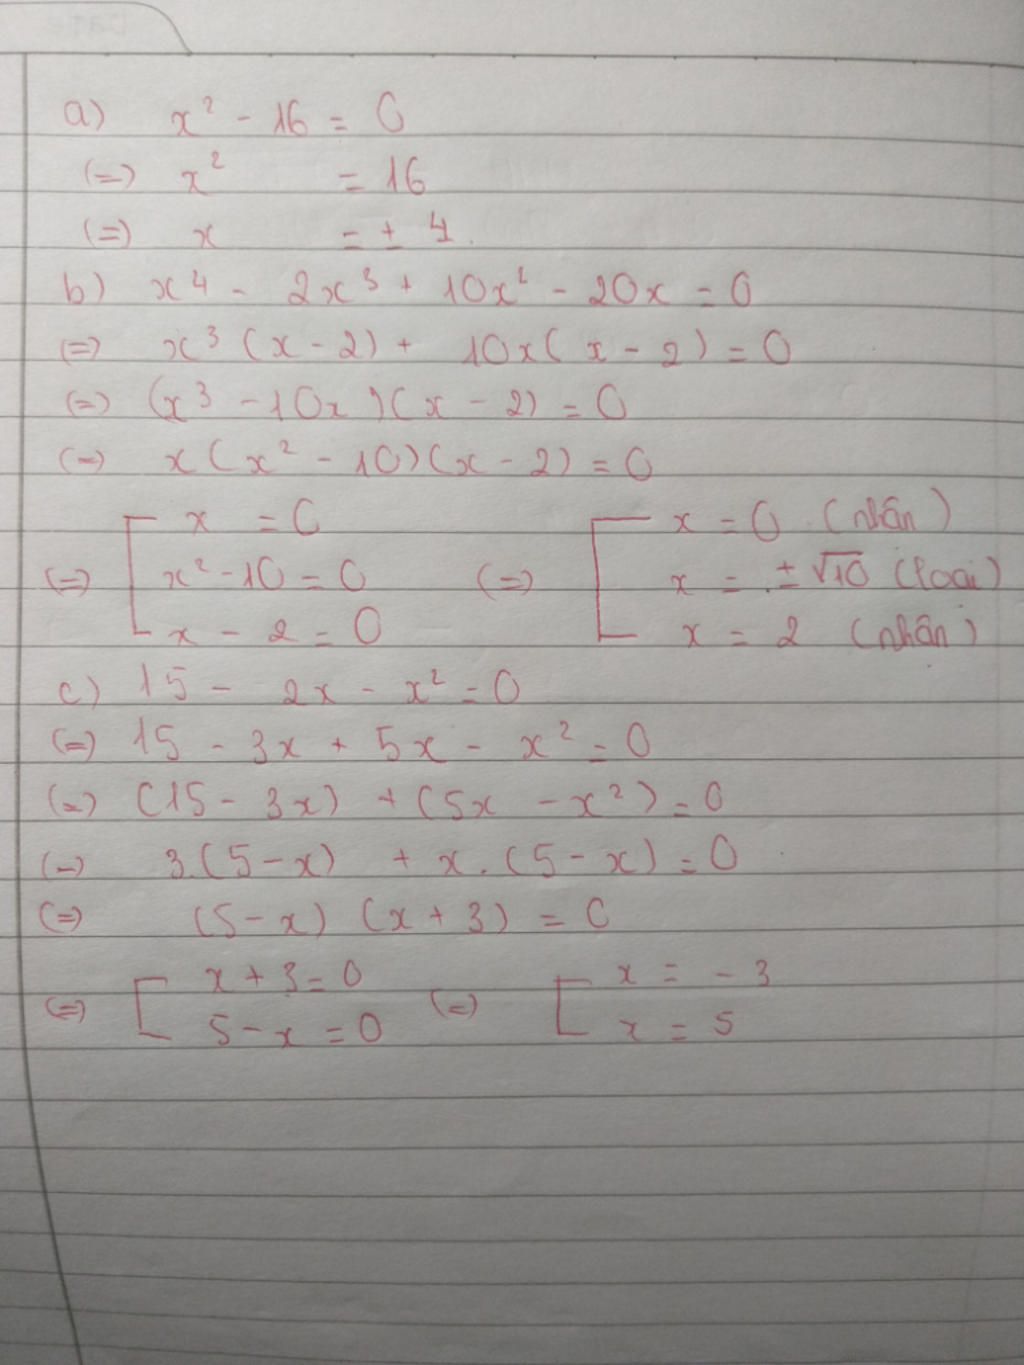 a) x² - 16 = 0
(=) x² = 16
(=) x = ± 4.
b) x⁴ - 2x³ + 10x² - 20x = 0
(=) x³ (x - 2) + 10x( x - 2) = 0
(=) (x³ - 10x )(x - 2) = 0
(=) x(x² - 10)(x - 2) = 0
(=) [ x = 0 (=) [ x = 0 (nhân)
x² - 10 = 0 x = ±√10 (loại)
x - 2 = 0 x = 2 (nhân)
c) 15 - 2x - x² = 0
(=) 15 - 3x + 5x - x² = 0
(=) (15 - 3x) + (5x - x²) = 0
(=) 3.(5 - x) + x.(5 - x) = 0
(=) (5 - x) (x + 3) = 0
(=) [ x + 3 = 0 (=) [ x = -3
5 - x = 0 x = 5